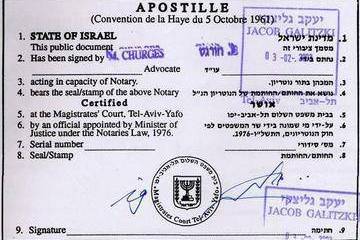 APOSTILLE
(Convention de la Haye du 5 Octobre 1961)
1. STATE OF ISRAEL
This public document
2. Has been signed by M. CHURGES
Advocate
3. acting in capacity of Notary.
4. bears the seal/stamp of the above Notary
Certified
5. at the Magistrates' Court, Tel-Aviv-Yafo
6. by an official appointed by Minister of
Justice under the Notaries Law, 1976.
7. Serial number
8. Seal/Stamp
9. Signature
מדינת ישראל .1
מסמך ציבורי זה
נחתם בידי
עו"ד
המכהן בתור נוטריון. .3
נושא את החותם/החותמת של הנוטריון הנ"ל .4
אושר
בבית משפט השלום תל-אביב-יפו .5
על-ידי מי שמונה בידי שר המשפטים לפי .6
חוק הנוטריונים, התשל"ו-1976.
מס' סידורי .7
החותם/החותמת .8
חתימה .9
יעקב גליצקי
JACOB GALITZKI
תל-אביב
Magistrates Court Tel-Aviv-Yafo
יעקב גליצקי
JACOB GALITZKI